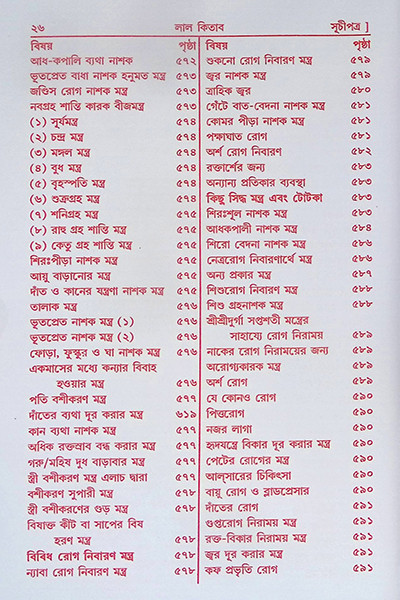 ২৬
লাল কিতাব
সূচীপত্র ]
বিষয় পৃষ্ঠা
আধ-কপালি ব্যথা নাশক ৫৭২
ভূতপ্রেত বাধা নাশক হনুমত মন্ত্র ৫৭৩
জণ্ডিস রোগ নাশক মন্ত্র ৫৭৩
নবগ্রহ শান্তি কারক বীজমন্ত্র ৫৭৩
(১) সূর্যমন্ত্র ৫৭৪
(২) চন্দ্র মন্ত্র ৫৭৪
(৩) মঙ্গল মন্ত্র ৫৭৪
(৪) বুধ মন্ত্র ৫৭৪
(৫) বৃহস্পতি মন্ত্র ৫৭৪
(৬) শুক্রগ্রহ মন্ত্র ৫৭৪
(৭) শনিগ্রহ মন্ত্র ৫৭৫
(৮) রাহু গ্রহ শান্তি মন্ত্র ৫৭৫
(৯) কেতু গ্রহ শান্তি মন্ত্র ৫৭৫
শিরঃপীড়া নাশক মন্ত্র ৫৭৫
আয়ু বাড়ানোর মন্ত্র ৫৭৫
দাঁত ও কানের যন্ত্রণা নাশক মন্ত্র ৫৭৫
তালাক মন্ত্র ৫৭৬
ভূতপ্রেত নাশক মন্ত্র (১) ৫৭৬
ভূতপ্রেত নাশক মন্ত্র (২) ৫৭৬
ফোড়া, ফুস্কুর ও ঘা নাশক মন্ত্র ৫৭৬
একমাসের মধ্যে কন্যার বিবাহ
হওয়ার মন্ত্র ৫৭৬
পতি বশীকরণ মন্ত্র ৫৭৭
দাঁতের ব্যথা দূর করার মন্ত্র ৬১৯
কান ব্যথা নাশক মন্ত্র ৫৭৭
অধিক রক্তস্রাব বন্ধ করার মন্ত্র ৫৭৭
গরু/মহিষ দুধ বাড়াবার মন্ত্র ৫৭৭
স্ত্রী বশীকরণ মন্ত্র এলাচ দ্বারা ৫৭৭
বশীকরণ সুপারী মন্ত্র ৫৭৮
স্ত্রী বশীকরণের গুড় মন্ত্র ৫৭৮
বিষাক্ত কীট বা সাপের বিষ
হরণ মন্ত্র ৫৭৮
বিবিধ রোগ নিবারণ মন্ত্র ৫৭৮
ন্যাবা রোগ নিবারণ মন্ত্র ৫৭৮
বিষয় পৃষ্ঠা
শুকনো রোগ নিবারণ মন্ত্র ৫৭৯
জ্বর নাশক মন্ত্র ৫৭৯
ত্রাহিক জ্বর ৫৮০
গেঁটে বাত-বেদনা নাশক মন্ত্র ৫৮১
কোমর পীড়া নাশক মন্ত্র ৫৮১
পক্ষাঘাত রোগ ৫৮১
অর্শ রোগ নিবারণ ৫৮২
রক্তার্শের জন্য ৫৮৩
অন্যান্য প্রতিকার ব্যবস্থা ৫৮৩
কিছু সিদ্ধ মন্ত্র এবং টোটকা ৫৮৩
শিরঃশূল নাশক মন্ত্র ৫৮৩
আধকপালী নাশক মন্ত্র ৫৮৪
শিরো বেদনা নাশক মন্ত্র ৫৮৬
নেত্ররোগ নিবারণার্থে মন্ত্র ৫৮৬
অন্য প্রকার মন্ত্র ৫৮৭
শিশুরোগ নিবারণ মন্ত্র ৫৮৮
শিশু গ্রহনাশক মন্ত্র ৫৮৮
শ্রীশ্রীদুর্গা সপ্তশতী মন্ত্রের
সাহায্যে রোগ নিরাময় ৫৮৯
নাকের রোগ নিরাময়ের জন্য ৫৮৯
অরোগ্যকারক মন্ত্র ৫৮৯
অর্শ রোগ ৫৮৯
যে কোনও রোগ ৫৯০
পিত্তরোগ ৫৯০
নজর লাগা ৫৯০
হৃদযন্ত্রে বিকার দূর করার মন্ত্র ৫৯০
পেটের রোগের মন্ত্র ৫৯০
আল্‌সারের চিকিৎসা ৫৯০
বায়ু রোগ ও ব্লাডপ্রেসার ৫৯০
দাঁতের রোগ ৫৯১
গুপ্তরোগ নিরাময় মন্ত্র ৫৯১
রক্ত-বিকার নিরাময় মন্ত্র ৫৯১
জ্বর দূর করার মন্ত্র ৫৯১
কফ প্রভৃতি রোগ ৫৯১